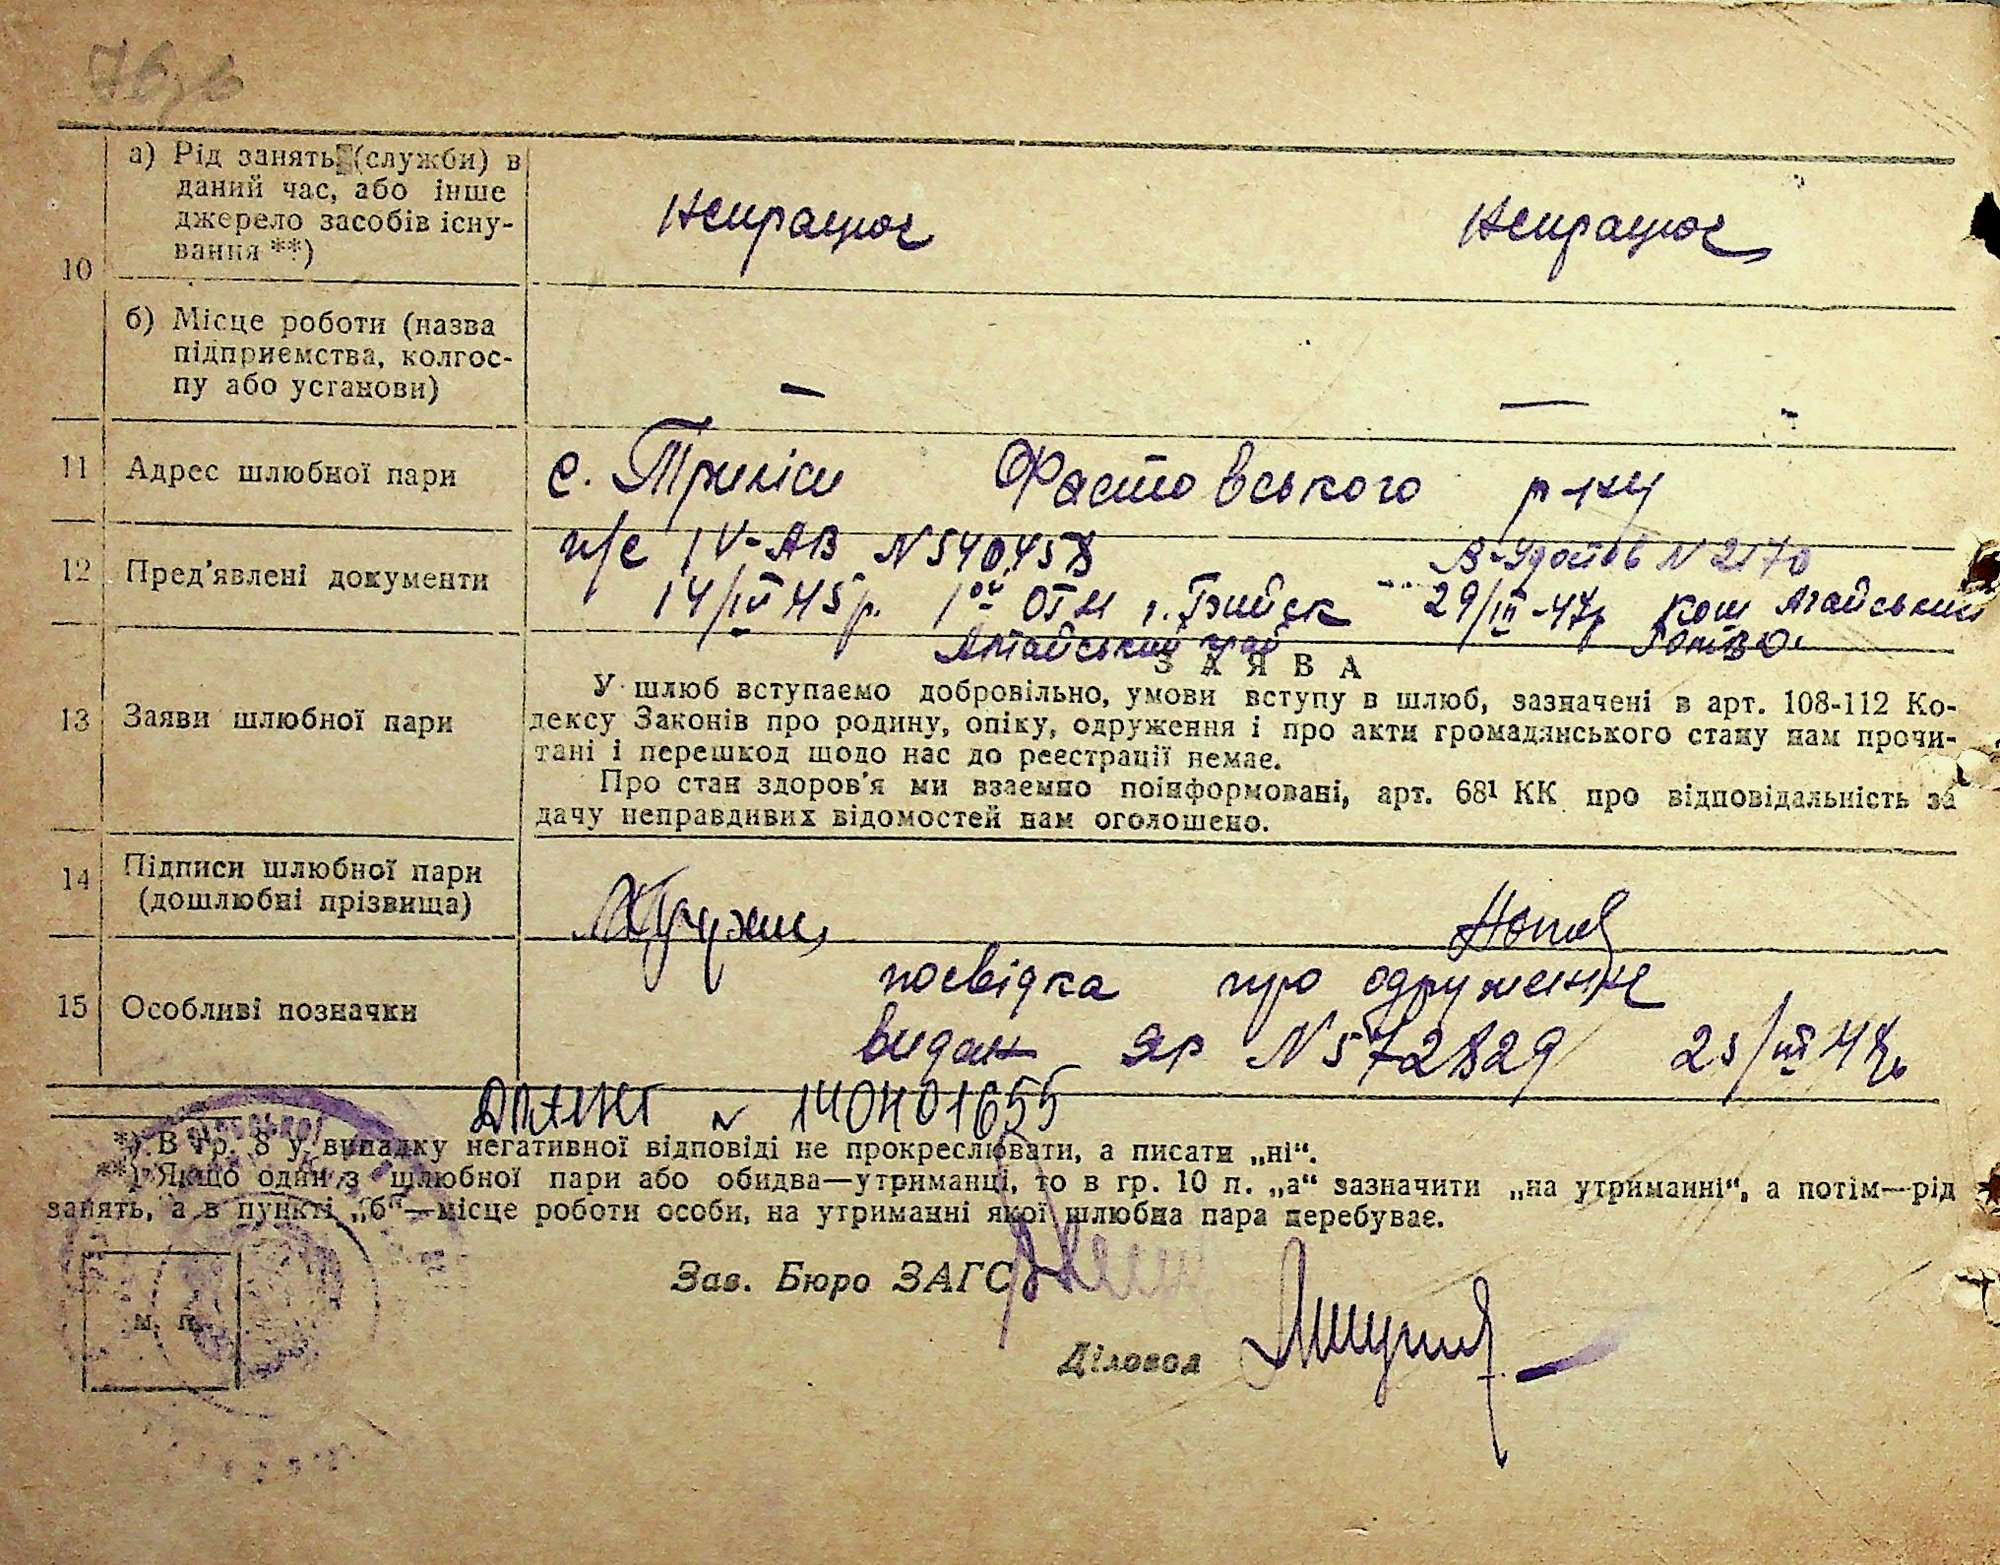 а) Рід занять (служби) в
даний час, або інше
джерело засобів існу-
вання **)
непрацює
непрацює
10
б) Місце роботи (назва
підприємства, колгос-
пу або установи)
—
—
11
Адрес шлюбної пари
с. Триліси Фастовського р-ну
12
Пред'явлені документи
п/с IV-АВ N 540458
14/IV 45 р. 1ое ОГМ г. Бийск
Алтайський край
В-Удостов N 2170
29/III-47р Кош Агайський
13
Заяви шлюбної пари
ЗАЯВА
У шлюб вступаємо добровільно, умови вступу в шлюб, зазначені в арт. 108-112 Ко-
дексу Законів про родину, опіку, одруження і про акти громадянського стану нам прочи-
тані і перешкод щодо нас до реєстрації немає.
Про стан здоров'я ми взаємно поінформовані, арт. 68¹ КК про відповідальність за
дачу неправдивих відомостей нам оголошено.
14
Підписи шлюбної пари
(дошлюбні прізвища)
15
Особливі позначки
посвідка про одруження
видан яр N 572829 25/III 48р
N 140401655
*) В гр. 8 у випадку негативної відповіді не прокреслювати, а писати „ні“.
**) Якщо один з шлюбної пари або обидва—утриманці, то в гр. 10 п. „а“ зазначити „на утриманні“, а потім—рід
занять, а в пункті „б“—місце роботи особи, на утриманні якої шлюбна пара перебуває.
Зав. Бюро ЗАГС
м. п.
Діловод